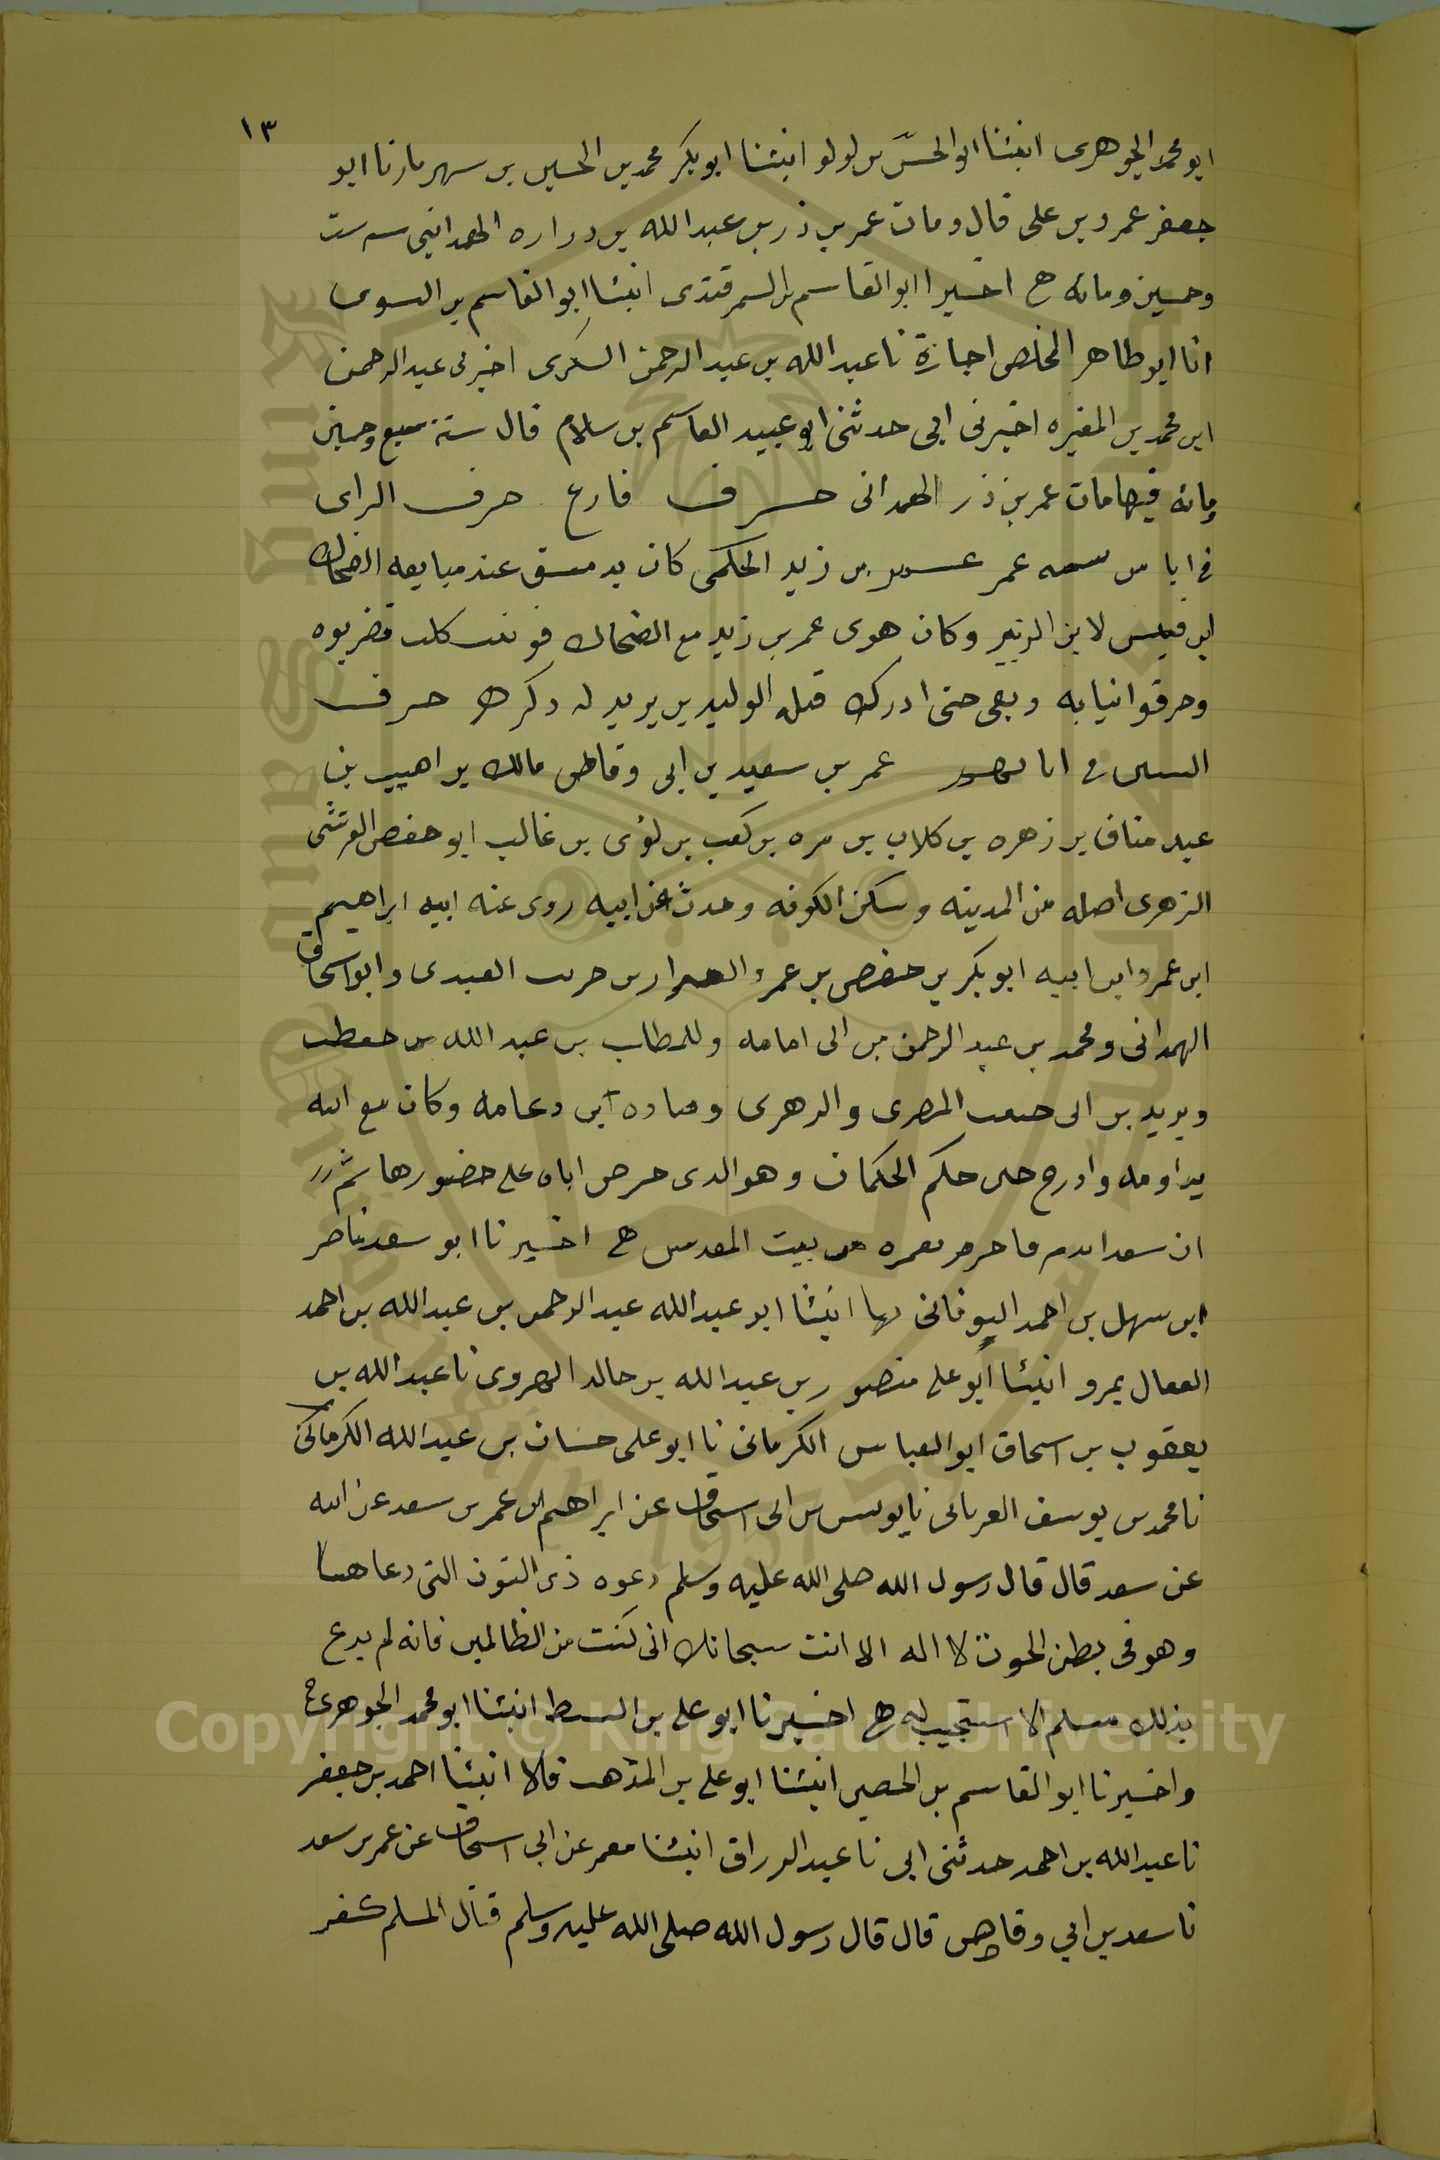 ١٣
ابو محمد الجوهرى انبئنا ابو الحسن بن لولو انبئنا ابو بكر محمد بن الحسين بن سهريار نا ابو
جعفر عمرو بن على قال ومات عمر بن ذر بن عبد الله بن دراره الهمدانى سنه ست
وخمسين ومائه ح اخبرا ابو القاسم بن السمرقندى انبئنا ابو القاسم بن السوى
انا ابو طاهر المخلص اجازة نا عبد الله بن عبد الرحمن السكرى اخبرنى عبد الرحمن
ابن محمد بن المغيره اخبرنى ابى حدثنى ابو عبيد القاسم بن سلام قال سنة سبع وخمسين
ومائه فيها مات عمر بن ذر الهمدانى حرف فارغ حرف الراى
فى ابا من عمر بن زيد الحكمى كان بدمشق عند مبايعه الضحاك
ابن قيس لابن الزبير وكان هوى عمر بن زيد مع الضحاك كلب فضربوه
وحرقوا ثيابه وبقى حتى ادرك قتل الوليد بن يزيد له ذكر ح حرف
السين فى ابا عمر بن سعيد بن ابى وقاص مالك بن اهيب بن
عبد مناف بن زهره بن كلاب بن مره بن كعب بن لؤى بن غالب ابو حفص القرشى
الزهرى اصله من المدينه وسكن الكوفه وحدث عن ابيه روى عنه ابيه ابراهيم
ابن عمر وابن ابيه ابو بكر بن حفص بن عمر بن حريث العبدى وابو اسحاق
الهمدانى ومحمد بن عبد الرحمن بن ابى امامه وللمطلب بن عبد الله بن حنطب
ويزيد بن ابى حبيب المصرى والزهرى وقتاده ابن دعامه وكان مع ابيه
واذرح حين حكم الحكمان وهو الذى حرض اباه على حضورها ثم
ان سعدا ندم فاحرم بعمره من بيت المقدس ح اخبرنا ابو سعد ناصر
ابن سهل بن احمد بها انبئنا ابو عبد الله عبد الرحمن بن عبد الله بن احمد
القفال بمرو انبئنا ابو على منصور بن عبد الله بن خالد الهروى نا عبد الله بن
يعقوب بن اسحاق ابو العباس الكرمانى نا ابو على حسان بن عبد الله الكرمانى
نا محمد بن يوسف الفريابى نا يونس بن ابى اسحاق عن ابراهيم بن عمر بن سعد عن ابيه
عن سعد قال قال رسول الله صلى الله عليه وسلم دعوه ذى النون التى دعا هنا
وهو فى بطن الحوت لا اله الا انت سبحانك انى كنت من الظالمين فانه لم يدع
بذلك مسلم الا استجيب له ح اخبرنا ابو على بن السبط انبئنا ابو محمد الجوهرى ح
واخبرنا ابو القاسم بن الحصين انبئنا ابو على بن المذهب قالا انبئنا احمد بن جعفر
نا عبد الله بن احمد حدثنى ابى نا عبد الرزاق انبئنا معمر عن ابى اسحاق عن عمر بن سعد
نا سعد بن ابي وقاص قال قال رسول الله صلى الله عليه وسلم قتال المسلم كفر
Copyright © King Saud University